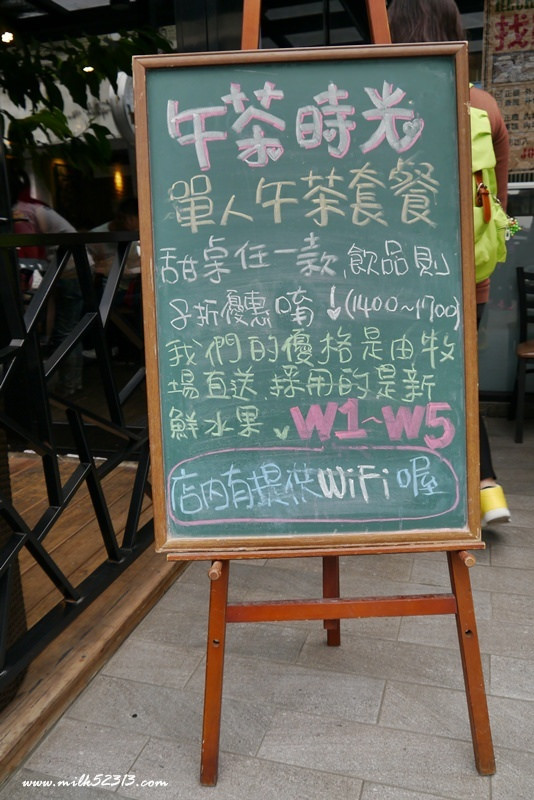 午茶時光
單人午茶套餐
甜桌任一款,飲品則
8折優惠唷!(1400~1700)
我們的優格是由牧
場直送,採用的是新
鮮水果。W1~W5
店內有提供WiFi喔
找
www.milk52313.com